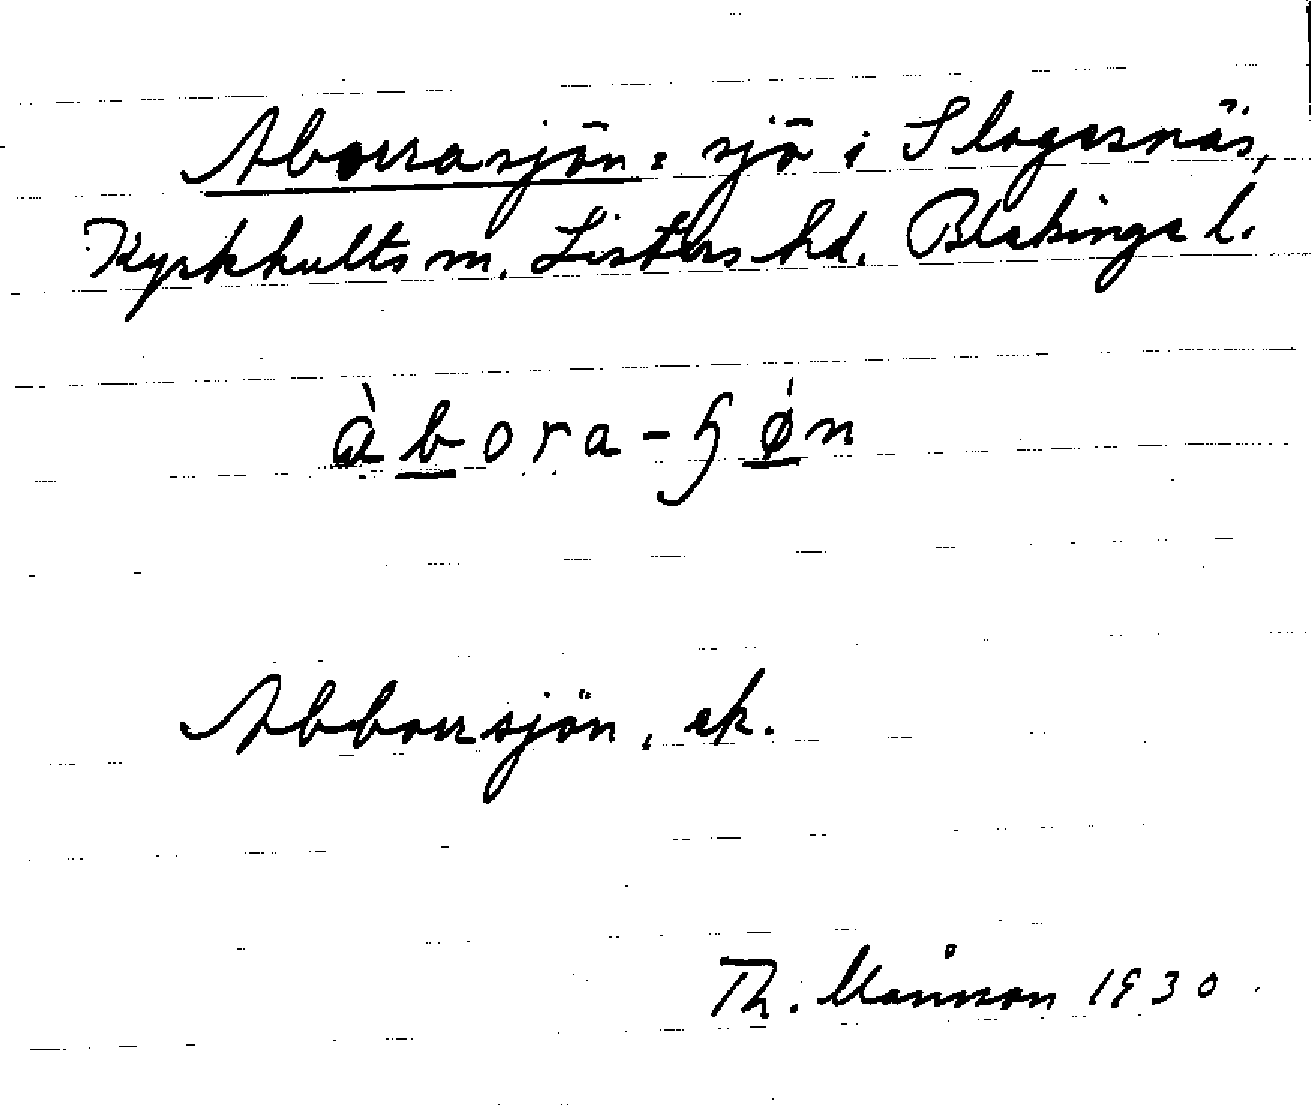 Aborrasjön: sjö i Slagesnäs,
Kyrkhults sn. Listers hd. Blekinge l.
àbora-ʃøn
Abborrsjön, ek.
Th. Månsson 1930